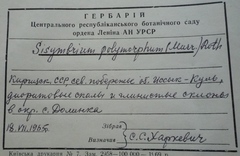 ГЕРБАРІЙ
Центрального республіканського ботанічного саду
ордена Леніна АН УРСР
Sisymbrium polymorphum (Murr.) Roth
Киргизск. ССР, сев. побережье оз. Иссык-Куль,
и глинистые склоны
в окр. с. Долинка
18.VII.1965
Зібрав
Визначив
С.С. Харкевич